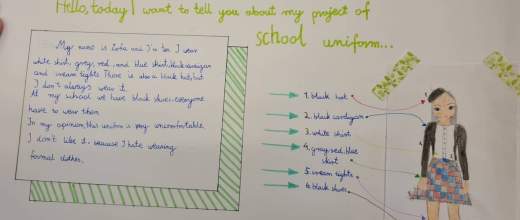 Hello, today I want to tell you about my project of
school uniform...
My name is Zofia and I'm ten. I wear
white shirt, grey, red, and blue skirt, black cardigan
and cream tights. There is also a black hat, but
I don't always wear it.
At my school we have black shoes, everyone
have to wear them.
In my opinion, this uniform is very uncomfortable.
I don't like it, because I hate wearing
formal clothes.
1. black hat
2. black cardigan
3. white shirt
4. grey, red, blue
skirt
5. cream tights
6. black shoes